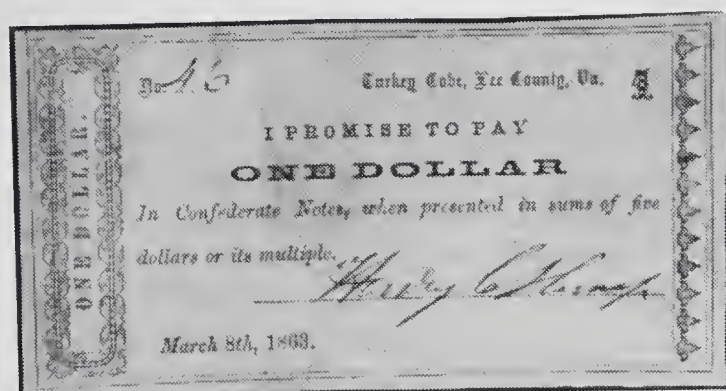 ONE DOLLAR.
No. 16
Turkey Cobe, Lee County, Va. 1
I PROMISE TO PAY
ONE DOLLAR
In Confederate Notes, when presented in sums of five
dollars or its multiple.
Henry C
March 8th, 1863.